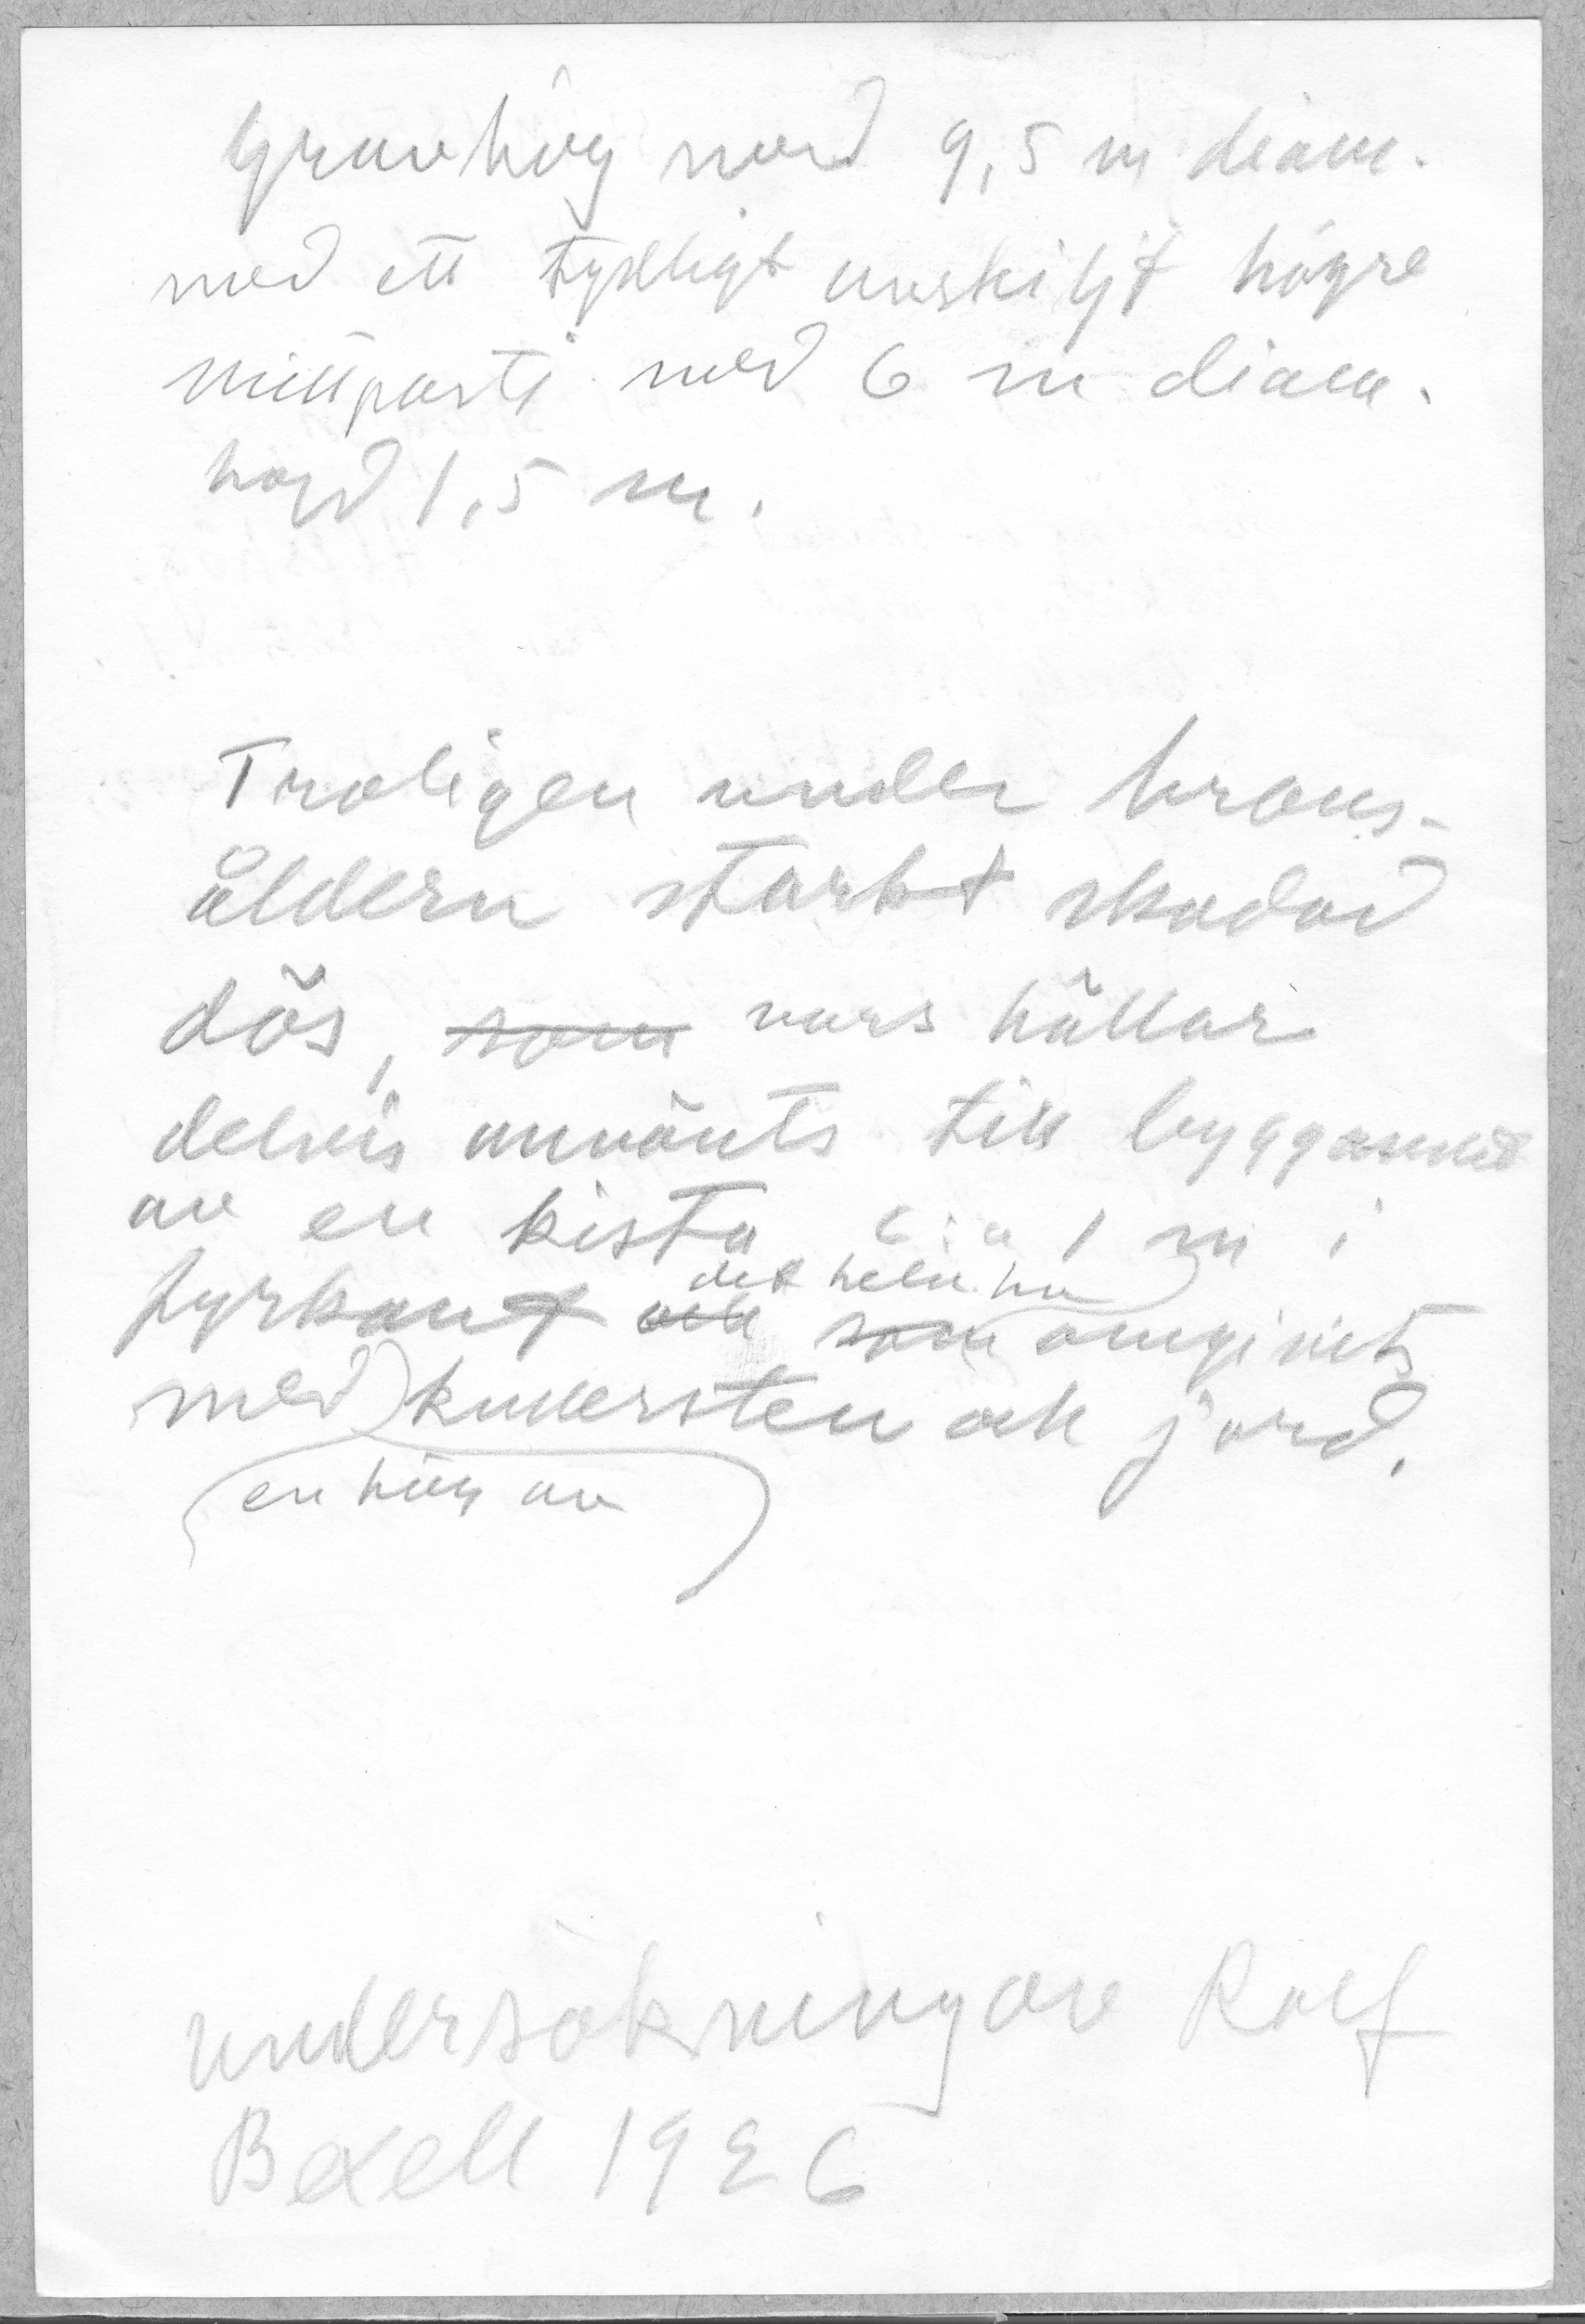 Gravhög med 9,5 m diam.
med ett tydligt urskiljt högre
mittparti med 6 m diam.
höjd 1,5 m.
Troligen under brons-
åldern starkt skadad
dös, som vars hällar
delvis använts till byggandet
av en kista c:a 1 m i
det hela har
fyrkant och som omgivits
med kullersten och jord.
en hög av
undersökning av Rolf
Bexell 1926